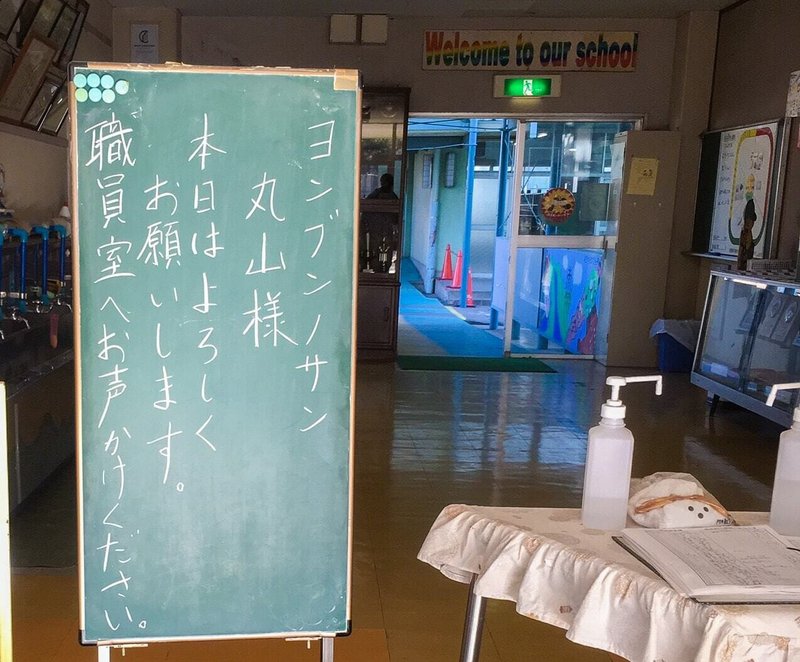 ヨンブンノサン
丸山様
本日はよろしく
お願いします。
職員室へお声かけください。
Welcome to our school